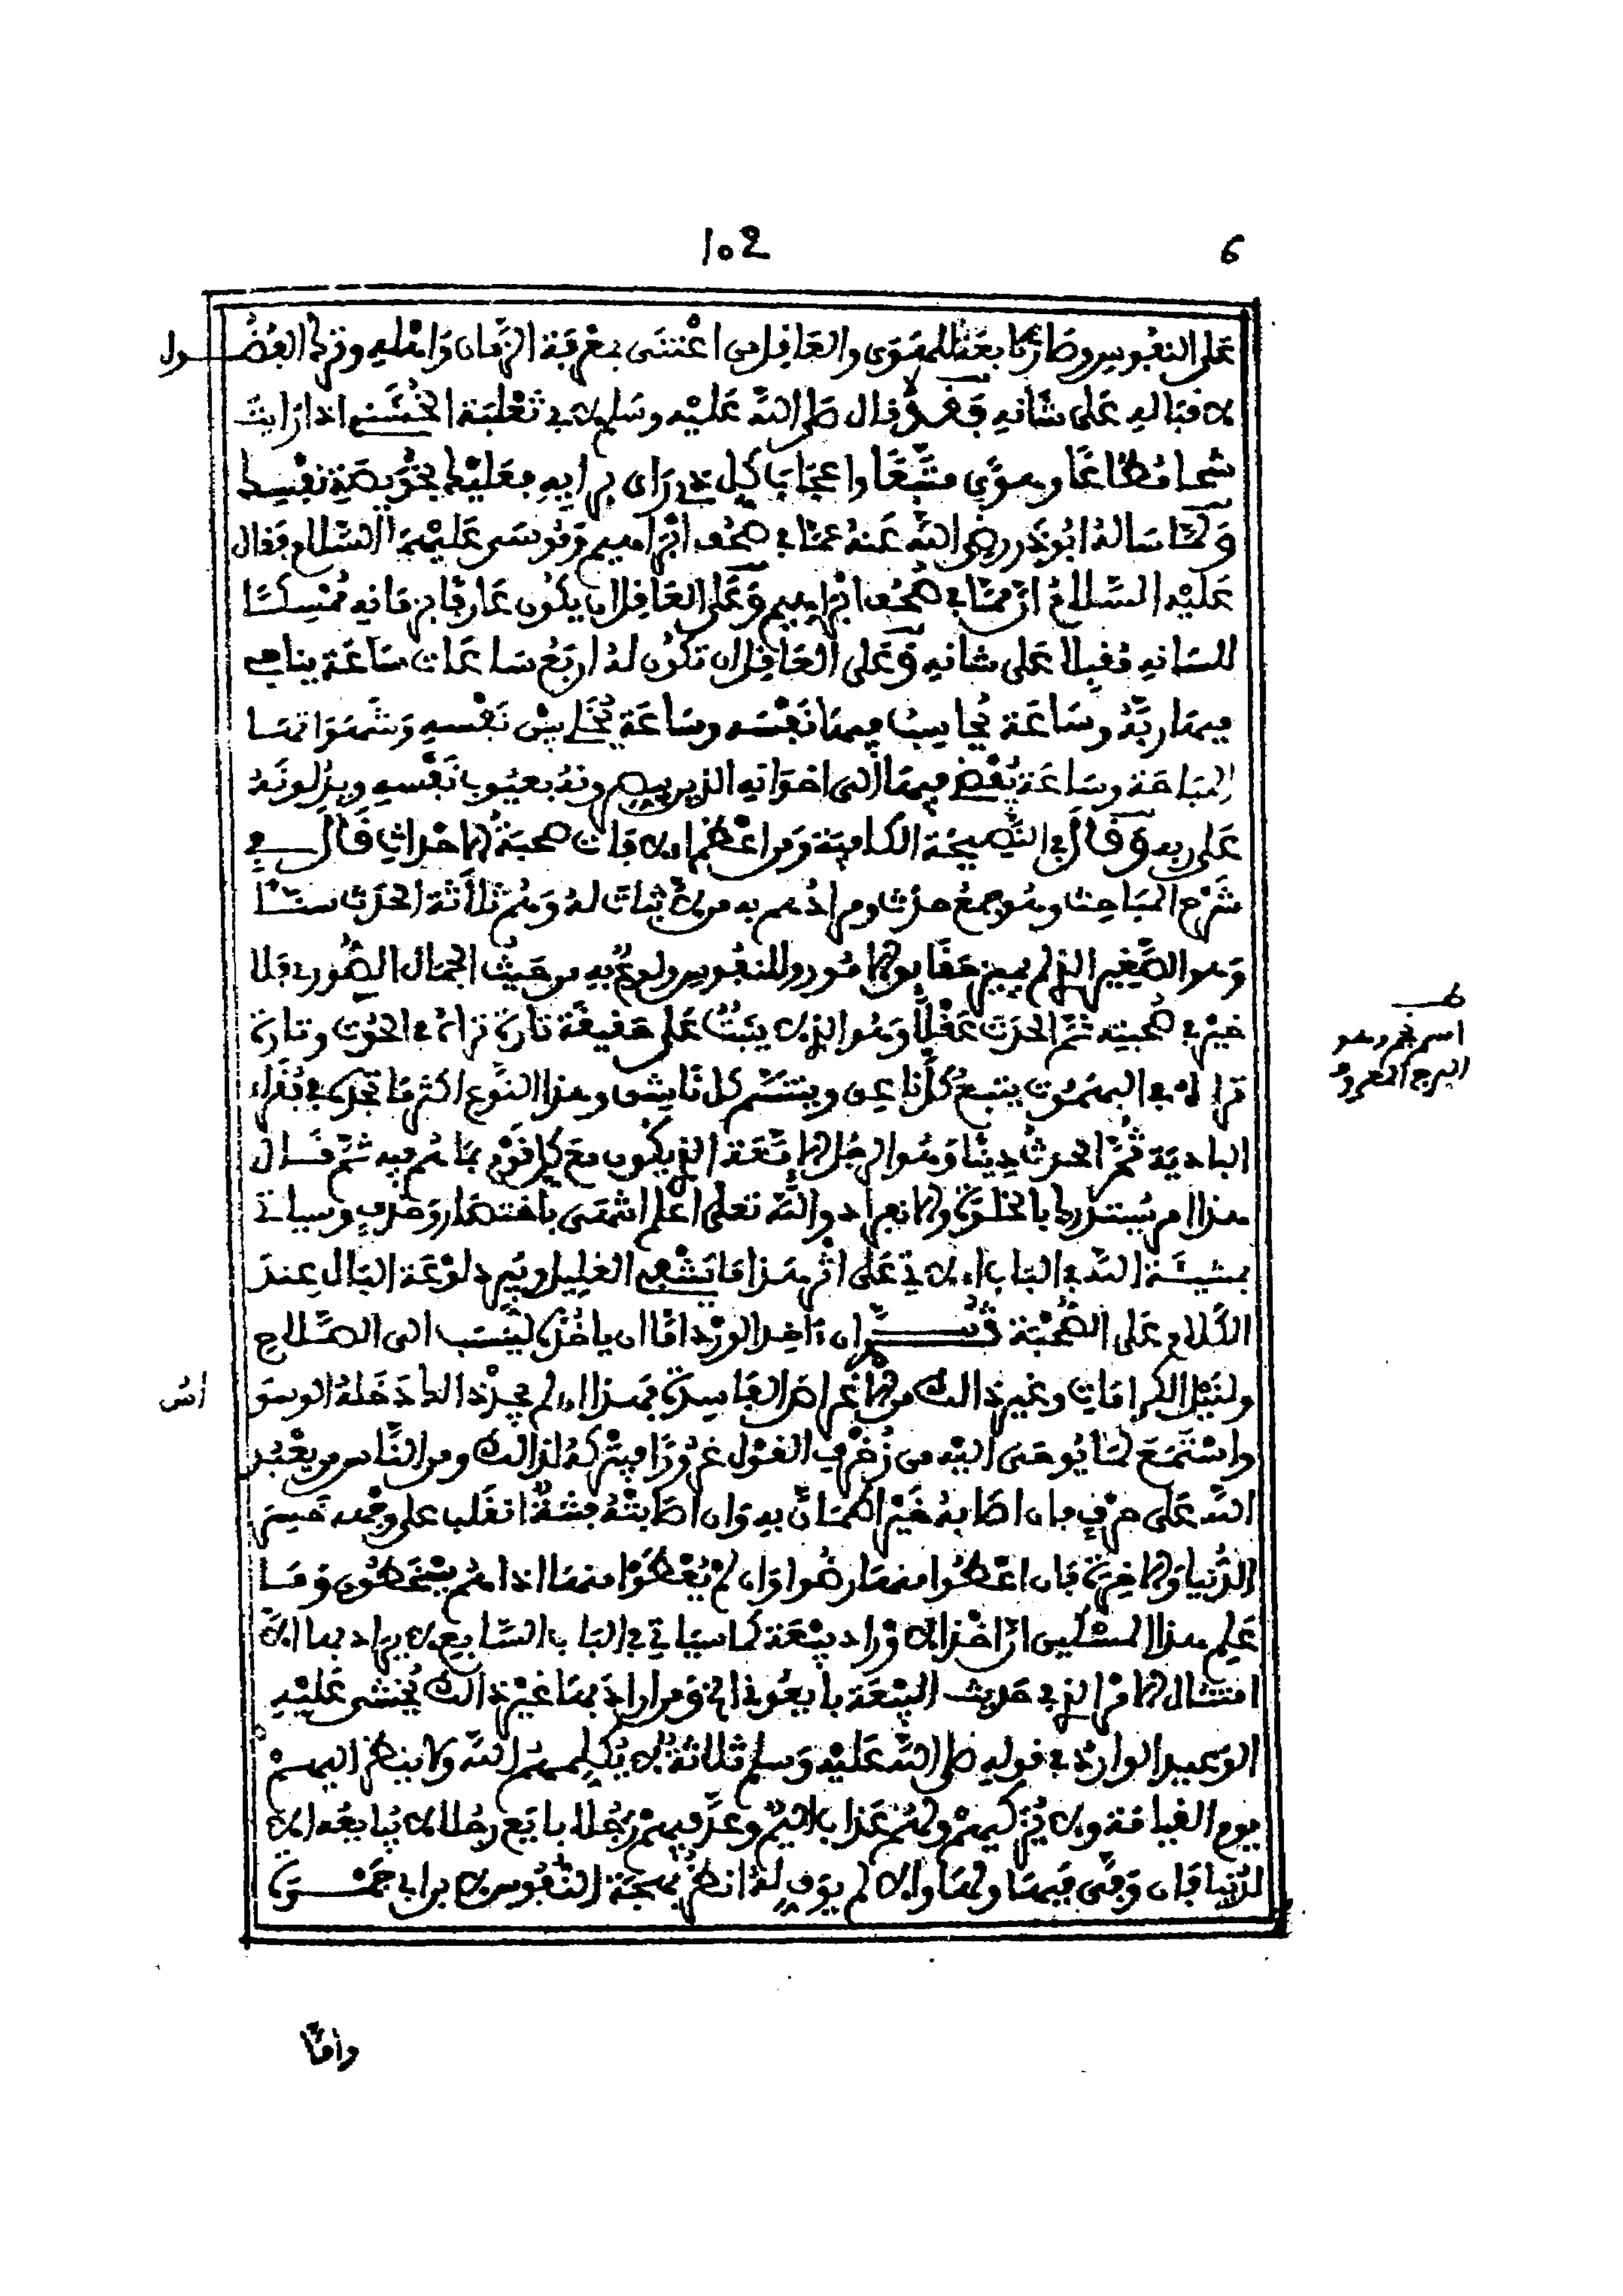 102
6
على النفوس وصارت تابعة للهوى والعاقل من اعتنى بمعرفة الزمان واهله وترك الفضول
لاقباله على شانه فقد قال صلى الله عليه وسلم لابي ثعلبة الخشني اذا رايت
شحا مطاعا وهوى متبعا واعجاب كل ذي راي برايه فعليك بخويصة نفسك
ولما ساله ابو ذر رضي الله عنه عما في صحف ابراهيم وموسى عليهما السلام فقال
عليه السلام ان مما في صحف ابراهيم وعلى العاقل ان يكون عارفا بزمانه ممسكا
للسانه مقبلا على شانه وعلى العاقل ان تكون له اربع ساعات ساعة يناجي
فيها ربه وساعة يحاسب فيها نفسه وساعة يخلي بين نفسه وشهواتها
المباحة وساعة يفضي فيها الى اخوانه الذين يبصرونه بعيوب نفسه ويدلونه
على ربه وقال في النصيحة الكافية ومن اعظم الافات صحبة الاحداث قال في
شرح المباحث وهو جمع حدث ومرادهم به من لا ثبات له وهم ثلاثة الحدث سنا
وهو الصغير الذي لم يميز حقايق الامور وللنفوس ولوع به من حيث الجمال الصوري فلا
خير في صحبته ثم الحدث عقلا وهو الذي لا يثبت على حقيقة تارة تراه في الحوت وتارة
تراه في البهموت يتبع كل ناعق ويتنسم كل ناشق وهذا النوع اكثر ما تجده في فقراء
البادية ثم الحدث دينا وهو الرجل الامعة الذي يكون مع كل قوم بما هم فيه ثم قال
هذا امر يستدرك بالخلوة والانفراد والله تعلى اعلم انتهى باختصار وحذف وسياتي
بمشيئة الله في الباب الاتي على اثر هذا ما يشفي الغليل ويبرد لوعة البال عند
الكلام على الصحبة ثم ان ءاخذ الورد اما ان ياخذه لينسب الى الصلاح
ولنيل الكرامات وغير ذالك من الاغراض الفاسدة فهذا ان لم يجد ذالك دخله الوسواس
واستمع لما يوحى اليه من زخرف القول غرورا فيتركه لذالك ومن الناس من يعبد
الله على حرف فان اصابه خير اطمان به وان اصابته فتنة انقلب على وجهه خسر
الدنيا والاخرة فان اعطوا منها رضوا وان لم يعطوا منها اذا هم يسخطون وما
علم هذا المسكين ان اخذ الاوراد بيعة كما سياتي في الباب السابع لا يراد بها الا
امتثال الامر الذي في حديث البيعة بايعوني الخ ومن اراد بها غير ذالك يخشى عليه
الوعيد الوارد في قوله صلى الله عليه وسلم ثلاثة لا يكلمهم الله ولا ينظر اليهم
يوم القيامة ولا يزكيهم ولهم عذاب اليم وعد فيهم رجلا بايع رجلا لا يبايعه الا
لدنيا فان وفى فيها ولها والا لم يوف له انظر بهجة النفوس لابن ابي جمرة
اسم نجم وهو
البرج المعروف
واما